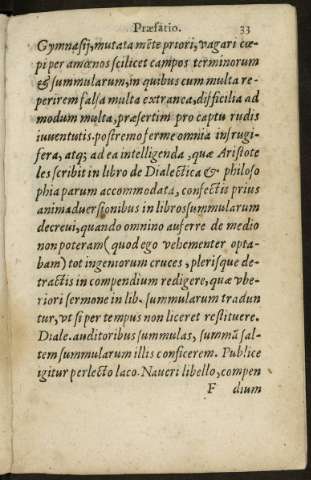 Præfatio. 33
Gymnasij, mutata mẽte priori, vagari cœ-
pi per amœnos scilicet campos terminorum
& summularum, in quibus cum multa re-
perirem falsa multa extranea, difficilia ad
modum multa, præsertim pro captu rudis
iuuentutis. postremo ferme omnia infrugi-
fera, atq; ad ea intelligenda, quæ Aristote
les scribit in libro de Dialectica & philoso
phia parum accommodata, confectis prius
animaduersionibus in libros summularum
decreui, quando omnino auferre de medio
non poteram (quod ego vehementer opta-
bam) tot ingeniorum cruces, plerisque de-
tractis in compendium redigere, quæ vbe-
riori sermone in lib. summularum tradun
tur, vt si per tempus non liceret restituere.
Diale. auditoribus summulas, summã sal-
tem summularum illis conficerem. Publice
igitur perlecto Iaco. Naueri libello, compen
F dium